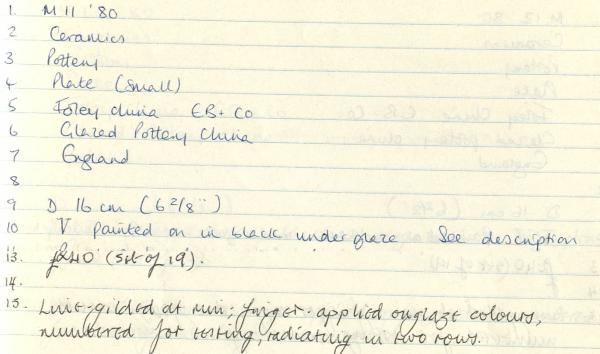 1 M 11 '80
2 Ceramics
3 Pottery
4 Plate (small)
5 Foley china EB + Co
6 Glazed Pottery China
7 England
8
9 D 16 cm (6 2/8")
10 V painted on in black underglaze See description
13. £240 (set of 19).
14.
15. Line-gilded at rim; finger-applied onglaze colours,
numbered for testing, radiating in two rows.